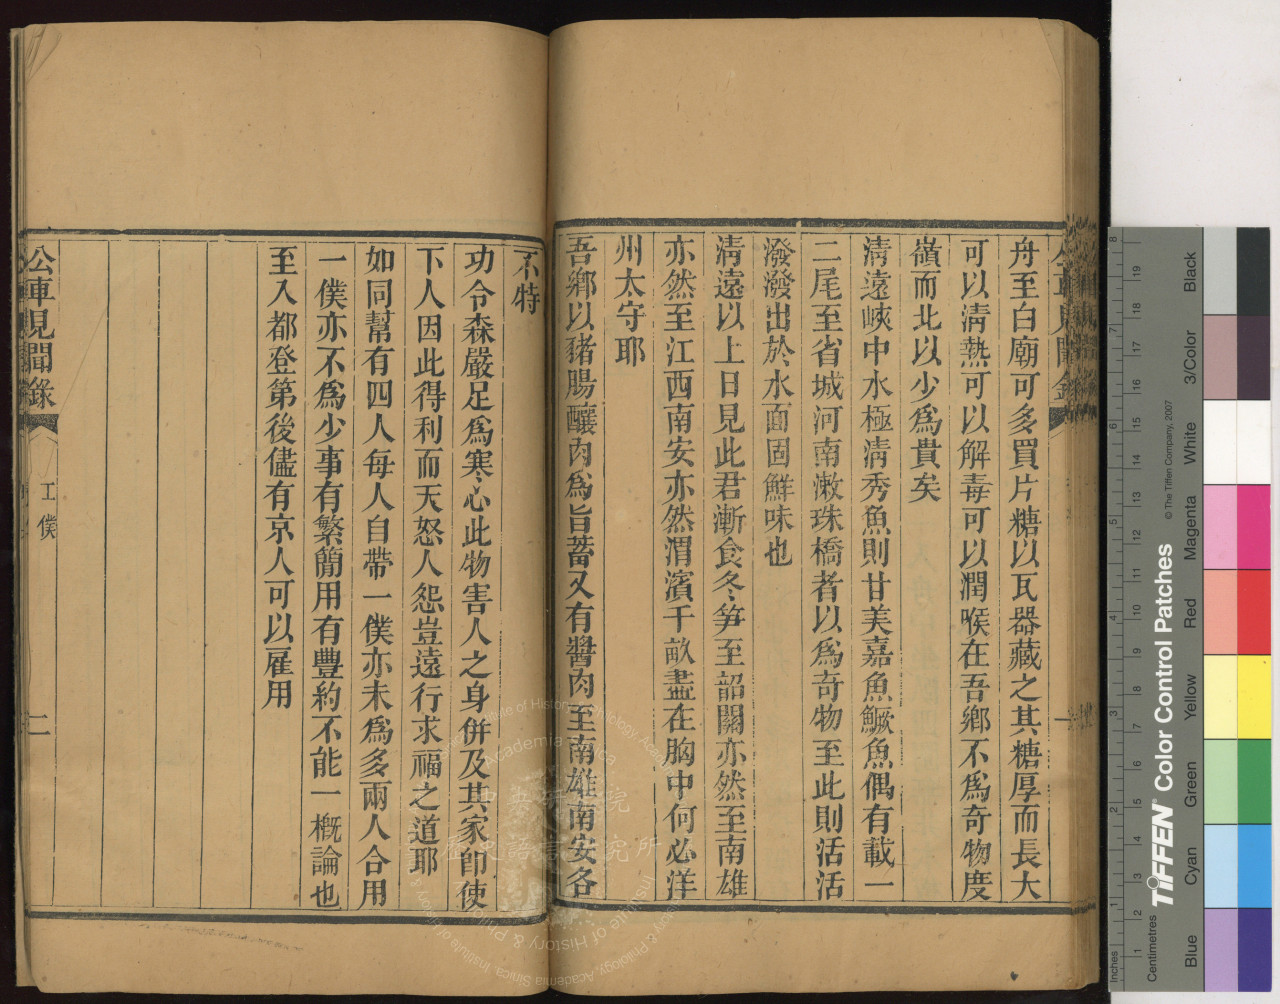 舟至白廟可多買片糖以瓦器藏之其糖厚而長大
可以淸熱可以解毒可以潤喉在吾鄕不爲奇物度
嶺而北以少爲貴矣
淸遠峽中水極淸秀魚則甘美嘉魚鱖魚偶有載一
二尾至省城河南漱珠橋者以爲奇物至此則活活
潑潑出於水面固鮮味也
淸遠以上日見此君漸食冬笋至韶關亦然至南雄
亦然至江西南安亦然渭濱千畝盡在胸中何必洋
州太守耶
吾鄕以豬腸釀肉爲旨蓄又有醬肉至南雄南安各
不特
功令森嚴足爲寒心此物害人之身併及其家卽使
下人因此得利而天怒人怨豈遠行求福之道耶
如同幫有四人每人自帶一僕亦未爲多兩人合用
一僕亦不爲少事有繁簡用有豐約不能一槪論也
至入都登第後儘有京人可以雇用
公車見聞錄
工僕
二
Centimetres
Inches
TIFFEN® Color Control Patches
© The Tiffen Company, 2007
Blue
Cyan
Green
Yellow
Red
Magenta
White
3/Color
Black
中央研究院
歷史語言研究所
Institute of History & Philology, Academia Sinica